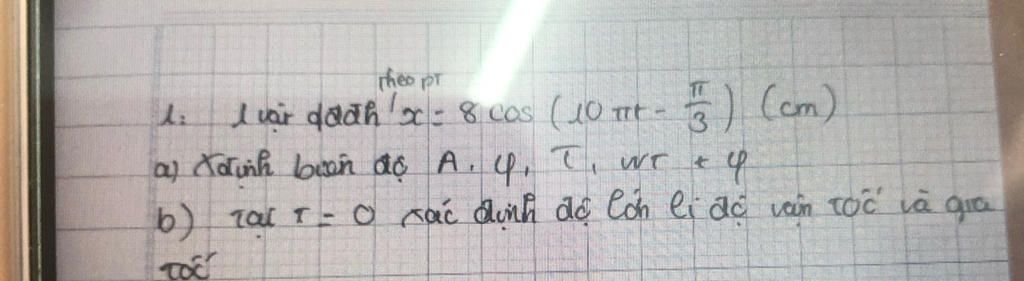 theo pt
1: 1 vật dđđh x = 8 cos (10πt - π/3) (cm)
a) Xđịnh biên độ A, φ, T, wt + φ
b) Tại t = 0 xác định độ lớn li độ vận tốc và gia
tốc